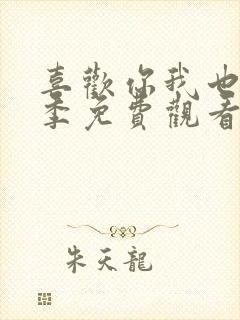 喜歡你我也
季免費觀看
朱天龍